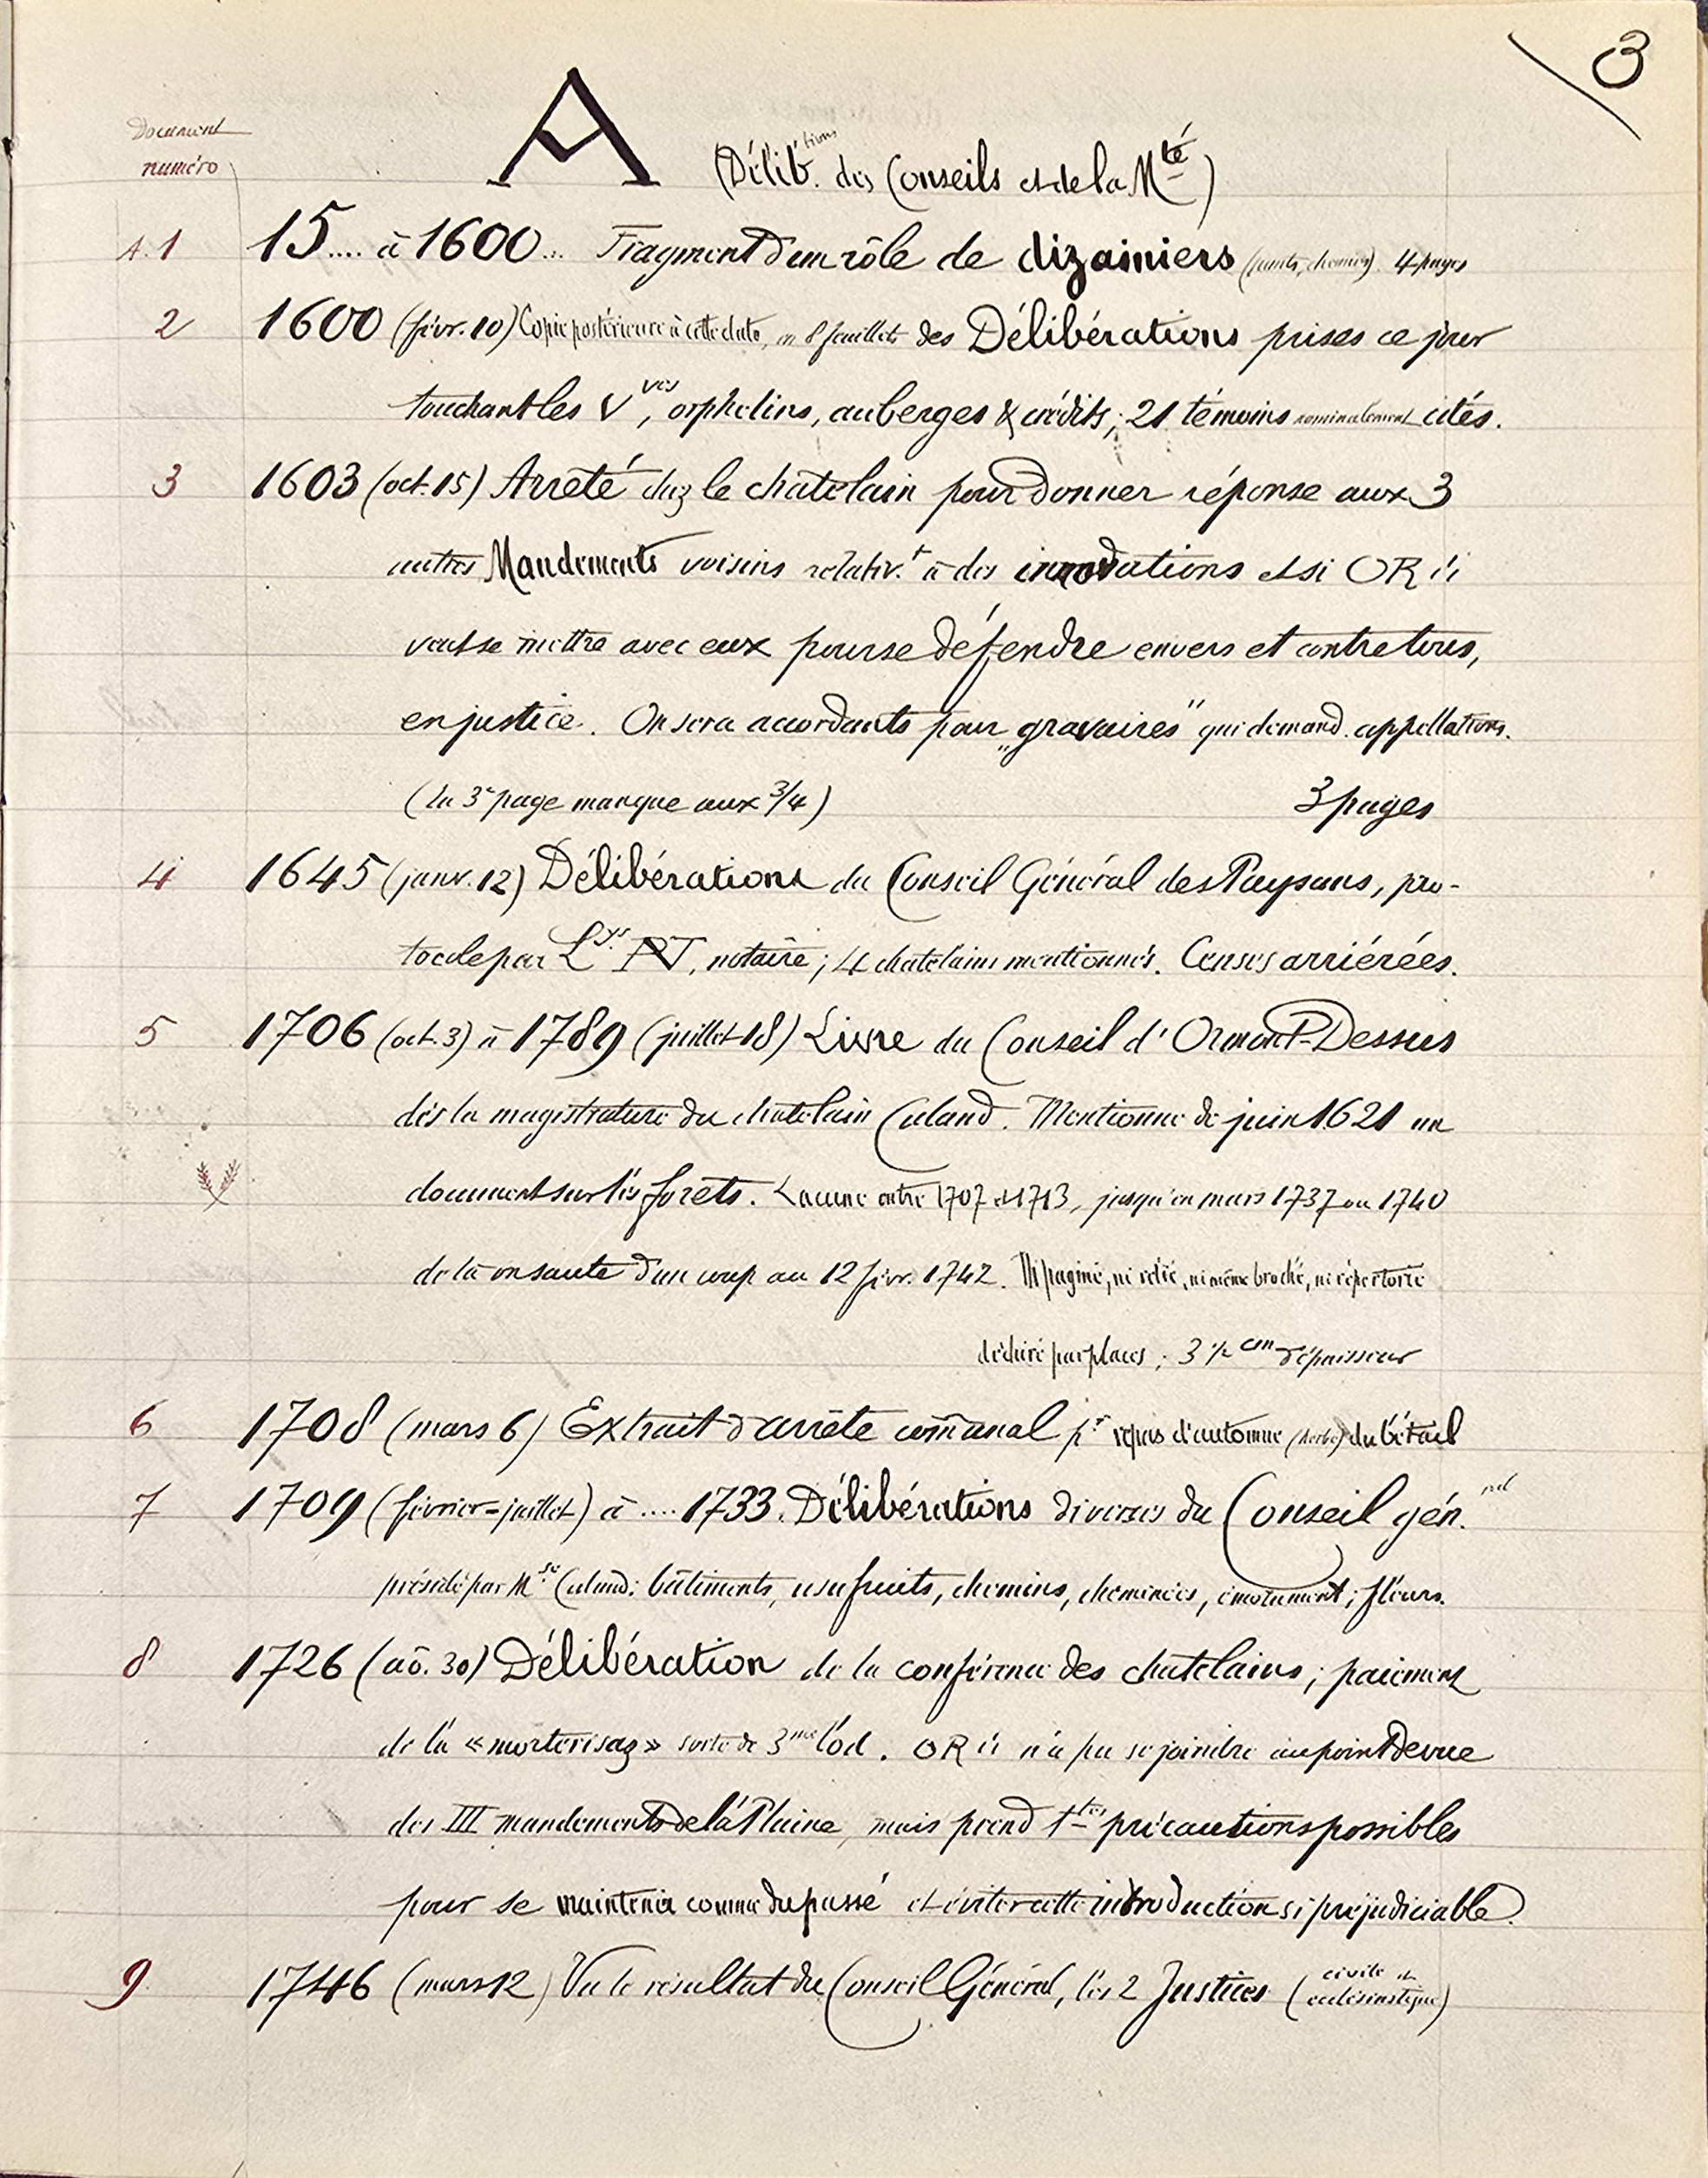 3
Document
numéro
A
(Délib.tions des Conseils et de la Mté)
A. 1 15.... à 1600... Fragment d'un rôle de dizainiers (ponts, chemins). 4 pages
2 1600 (févr. 10) Copie postérieure à cette date, en 8 feuillets des Délibérations prises ce jour
touchant les Vves, orphelins, auberges & crédits; 21 témoins nominalement cités.
3 1603 (oct. 15) Arrêté chez le chatelain pour donner réponse aux 3
autres Mandements voisins relativ.t à des innovations et si OR ss
veut se mettre avec eux pour se défendre envers et contre tous,
en justice. On sera accordants pour „gravaires" qui demand. appellations.
(la 3e page manque aux 3/4) 3 pages
4 1645 (janv. 12) Délibérations du Conseil Général des Paysans, pro-
tocole par Lys. , notaire; 4 chatelains mentionnés. Censes arriérées.
5 1706 (oct. 3) à 1789 (juillet 18) Livre du Conseil d'Ormont-Dessus
dès la magistrature du chatelain Culand. Mentionne de juin 1621 un
document sur les forêts. Lacune entre 1707 et 1713, jusqu'en mars 1737 ou 1740
de là on saute d'un coup au 12 févr. 1742. Ni paginé, ni relié, ni même broché, ni répertorié
déchiré par places; 3 ½ cm d'épaisseur
6 1708 (mars 6) Extrait d'arrêté com̃unal pr repas d'automne (herbe) du bétail
7 1709 (février=juillet) à .... 1733. Délibérations diverses du Conseil gén.ral
présidé par Mse Culand: bâtiments, usufruits, chemins, cheminées, émolument; fleurs.
8 1726 (aô. 30) Délibération de la conférence des chatelains; paiement
de la « morterisaz » sorte de 3me lod. OR ss n'a pu se joindre au point de vue
des III mandements de la Plaine, mais prend ttes précautions possibles
pour se maintenir comme du passé et éviter cette introduction si préjudiciable.
9 1746 (mars 12) Vu le résultat du Conseil Général, les 2 Justices (civile et ecclésiastique)